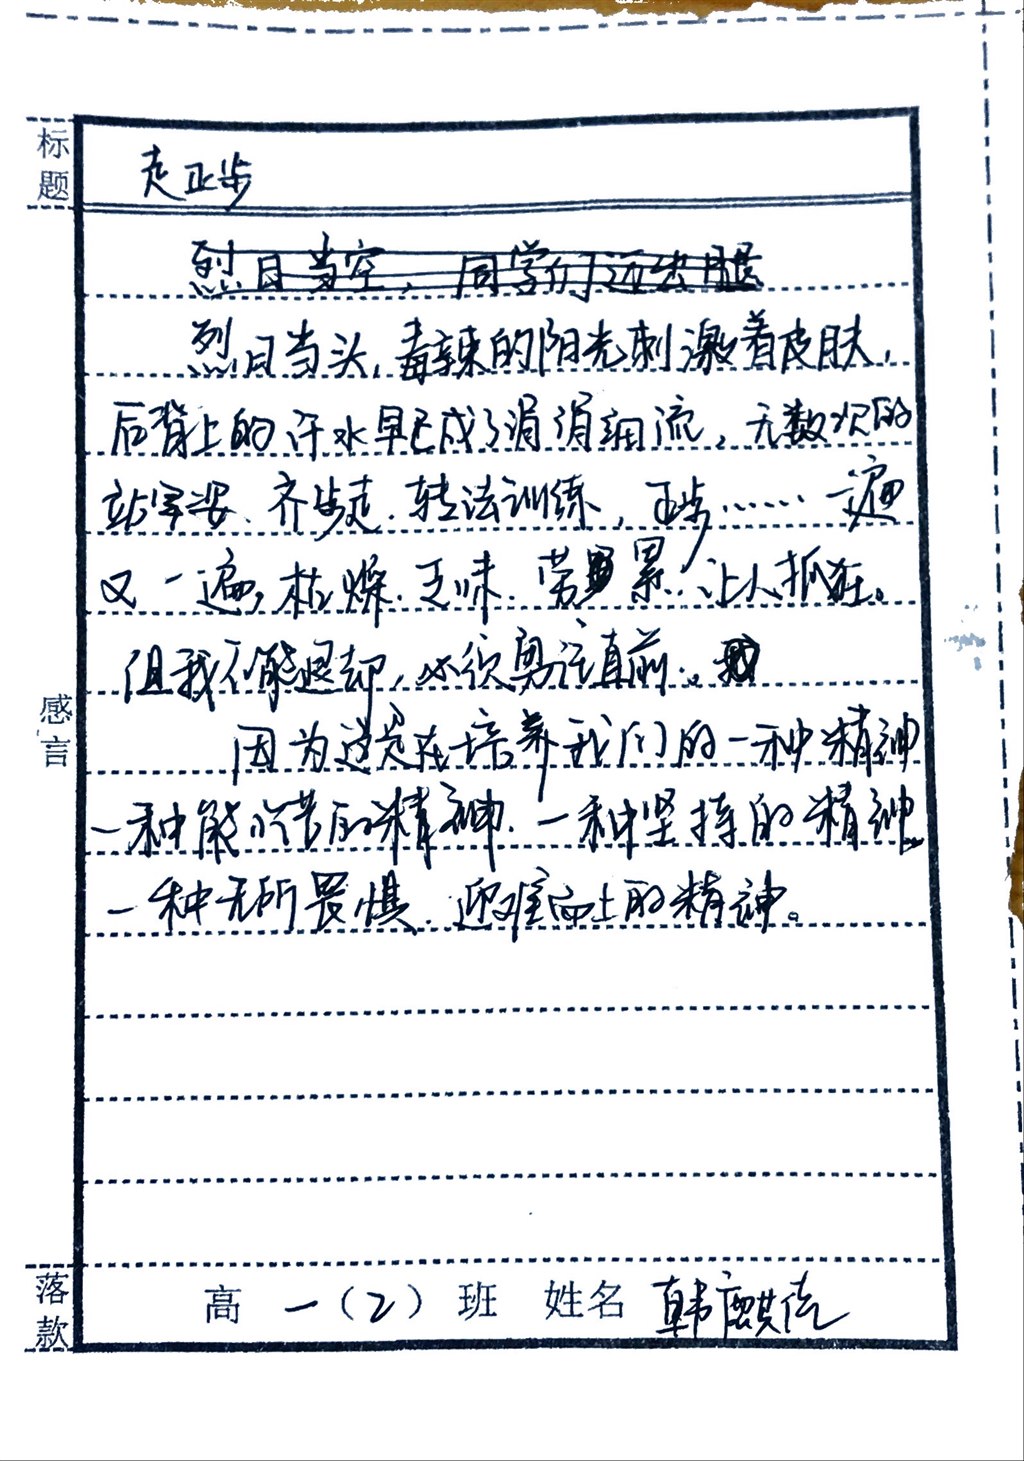 标题
走正步
烈日当空，同学们迈出腿
烈日当头，毒辣的阳光刺激着皮肤，
后背上的汗水早已成了涓涓细流，无数次的
站军姿、齐步走、转法训练，正步……一遍
又一遍，枯燥、乏味、劳累，让人抓狂。
但我不能退却，必须勇往直前。
感言
因为这是在培养我们的一种精神
一种能吃苦的精神、一种坚持的精神
一种无所畏惧、迎难而上的精神。
落款
高一（2）班 姓名 韩